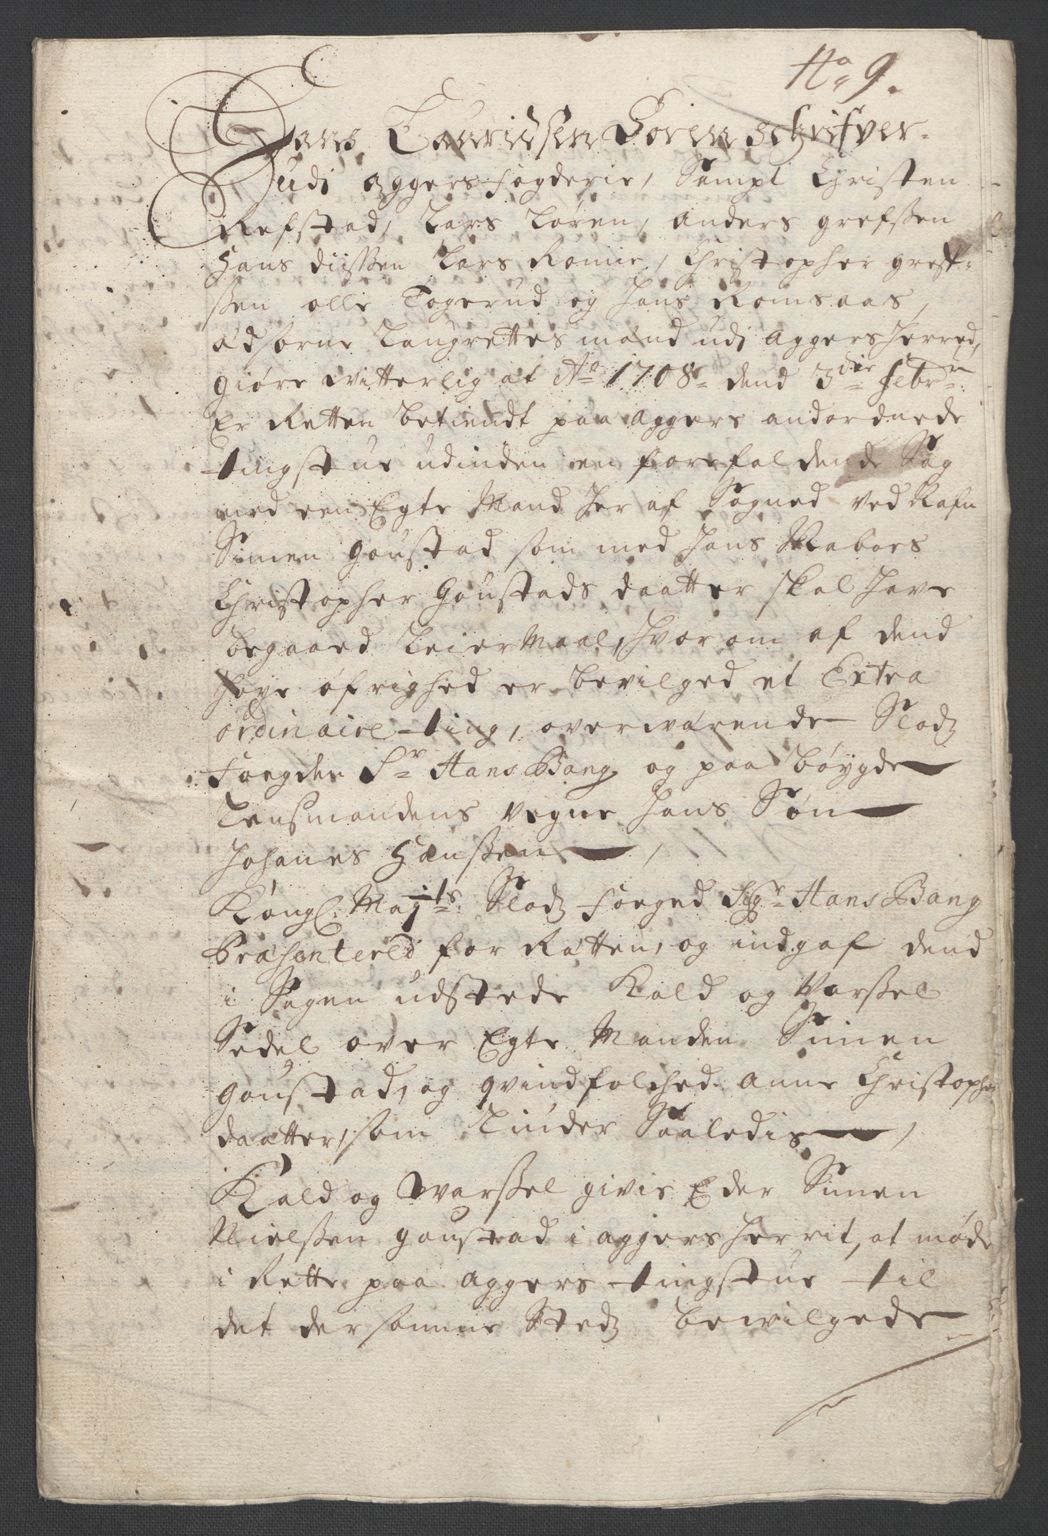 No 9.
Hans Lauridsen Sorenschrifver
Udi Aggers fogderie, Sampt Christen
Refstad, Lars Løren, Anders Grefsen
Hans Diissen Lars Rønne, Christopher Gref-
sen olle Togerud og Hans Romsaas,
Edsorne Laugrettes mænd udi Aggers Herred,
Giøre Vitterlig at Ao 1708 dend 3die Febr:
Er Retten betiendt paa Aggers anordnede
tingstue udinden een forefaldende Sag
med een Egte Mand her af Sogned ved Nafn
Simen Goustad som med hans Nabors
Christopher Goustads daatter skal have
begaaed Leiermaal, hvorom af dend
høye øfrighed er bevilged et Extra
ordinaire ting, overværende Slodz
Foegden Sr Hans Bang og paa bøygde
Lensmandens vegne hans Søn
Johanes Hansen,
Kongl. Mayts Slodz Foeged Sgr Hans Bang
Præsenterede for Retten, og indgaf dend
i Sagen udstede Kald og Varsel
Sedel over Egte Manden Simen
Goustad, og qvindfolched Anne Christophers
daatter, som Liuder Saaledis,
Kald og Warsel givis Eder Simen
Nielsen Goustad i Aggers Herrit, at møde
i Rette paa Aggers tingstue til
det der samme Stedz bewilgede